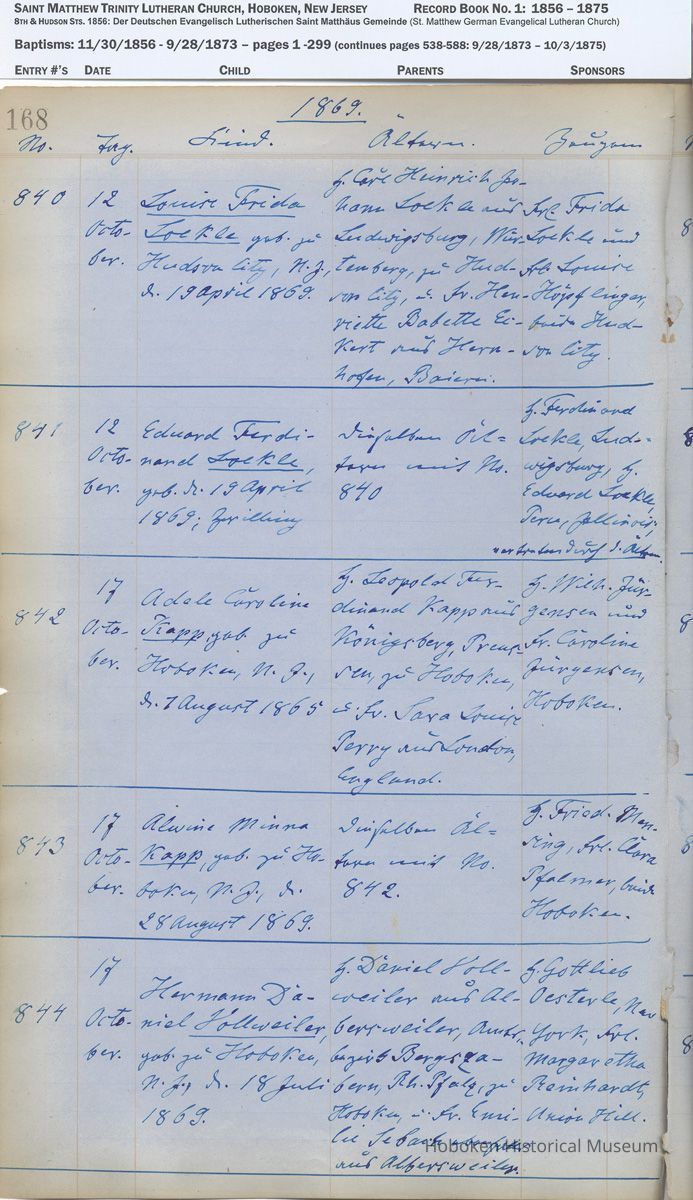 SAINT MATTHEW TRINITY LUTHERAN CHURCH, HOBOKEN, NEW JERSEY RECORD BOOK NO. 1: 1856 – 1875
8TH & HUDSON STS. 1856: Der Deutschen Evangelisch Lutherischen Saint Matthäus Gemeinde (St. Matthew German Evangelical Lutheran Church)
Baptisms: 11/30/1856 - 9/28/1873 – pages 1 -299 (continues pages 538-588: 9/28/1873 – 10/3/1875)
ENTRY #'S DATE CHILD PARENTS SPONSORS
168
1869.
No. Tag. Kind. Ältern. Zeugen
840
12
Octo-
ber.
Louise Frida
Loekle geb. zu
Hudson City, N. J.,
d. 19 April 1869.
H. Carl Heinrich Jo-
hann Loekle aus
Ludwigsburg, Wür-
temberg, zu Hud-
son City, u. Fr. Hen-
riette Babette Ec-
kert aus Hern-
hofen, Baiern.
Frl. Frida
Loekle und
Frl. Louise
Höpflinger,
beide Hud-
son City.
841
12
Octo-
ber.
Eduard Ferdi-
nand Loekle,
geb. d. 19 April
1869; Zwilling
Dieselben Äl=
tern mit No.
840
H. Ferdinand
Loekle, Lud-
wigsburg, H.
Eduard Loekle,
Peru, Illinois,
vertreten durch d. Ältern.
842
17
Octo-
ber.
Adele Caroline
Kapp, geb. zu
Hoboken, N. J.,
d. 7 August 1865
H. Leopold Fer-
dinand Kapp aus
Königsberg, Preus-
sen, zu Hoboken,
u. Fr. Sara Louise
Perry aus London,
England.
H. Wilh. Jür-
gensen und
Fr. Caroline
Jürgensen,
Hoboken.
843
17
Octo-
ber.
Alwine Minna
Kapp, geb. zu Ho-
boken, N. J., d.
28 August 1869.
Dieselben Äl-
tern mit No.
842.
H. Fried.
Frl. Clara
Pfalmer, beide
Hoboken.
844
17
Octo-
ber.
Hermann Da-
niel Vollweiler,
geb. zu Hoboken,
N. J., d. 18 Juli
1869.
H. Daniel Voll-
weiler aus Al-
bersweiler, Amts-
bezirk Bergsza-
bern, Rh. Pfalz, zu
Hoboken, u. Fr. Emi-
lie
aus Albersweiler.
H. Gottlieb
Oesterle, New
York, Frl.
Margaretha
Reinhardt,
Union Hill.
Hoboken Historical Museum